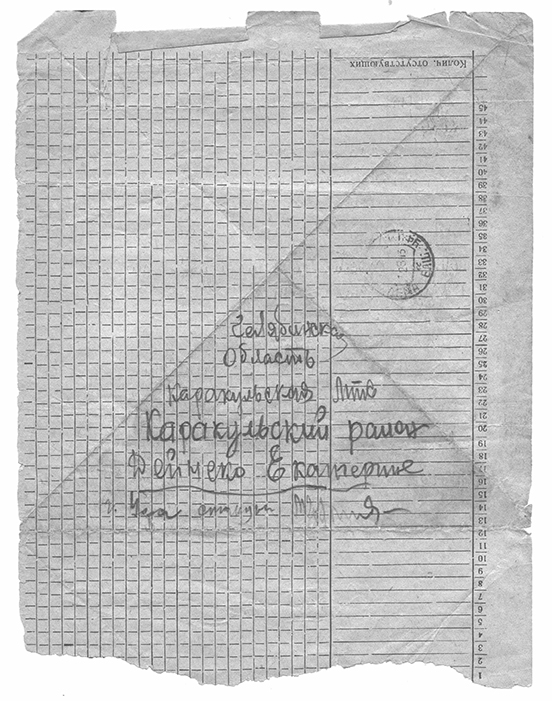 Колич. отсутствующих
45
44
43
42
41
40
39
38
37
36
35
34
33
32
31
30
29
28
27
26
25
24
23
22
21
20
19
18
17
16
15
14
13
12
11
10
9
8
7
6
5
4
3
2
1
Челябинска
Область
Каракульская Мтс
Каракульский район
Дейнеко Екатерине
г. Уфа